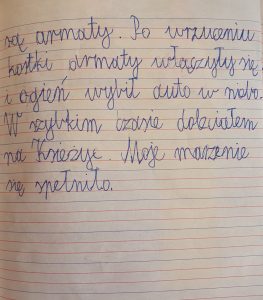 są armaty. Po wrzuceniu
kostki armaty włączyły się
i ogień wybił auto w niebo.
W szybkim czasie doleciałem
na Księżyc. Moje marzenie
się spełniło.